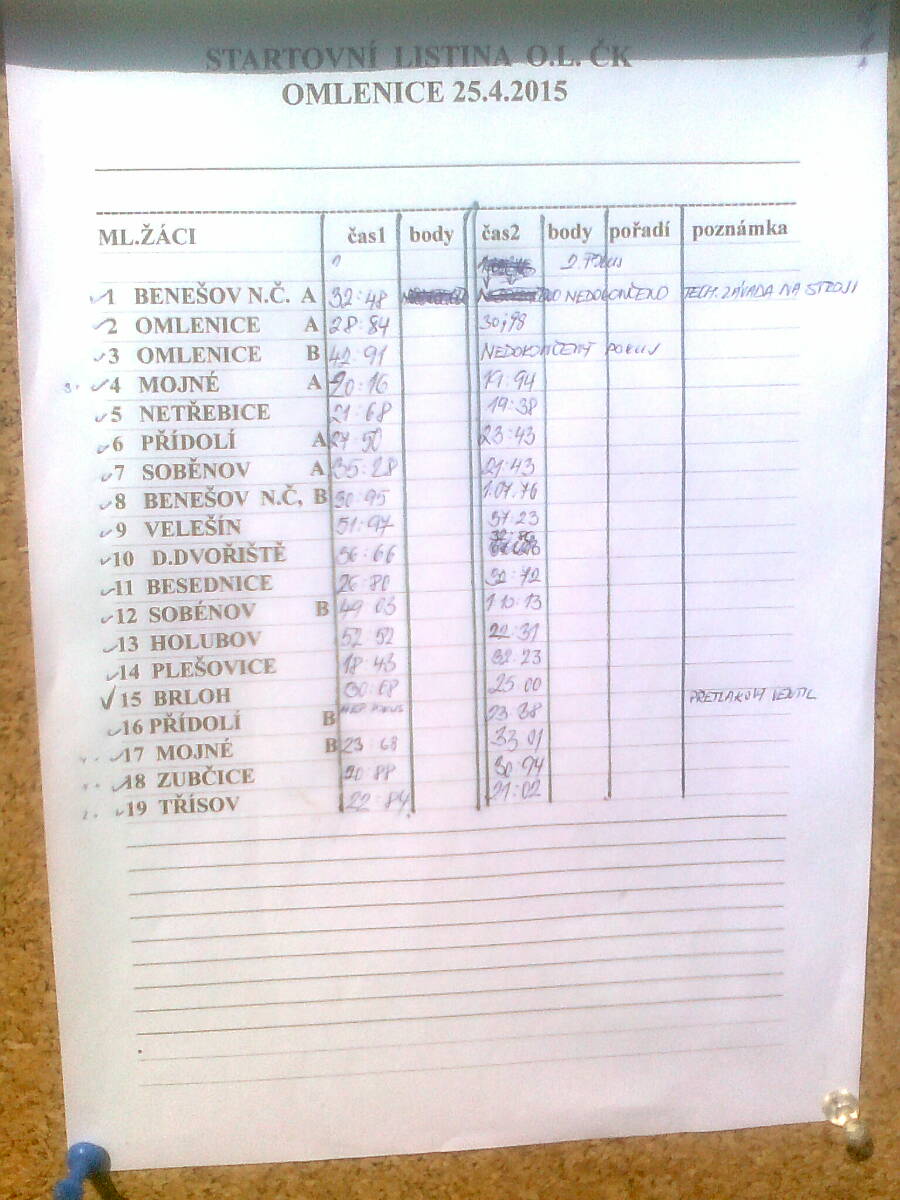 STARTOVNÍ LISTINA O.L. ČK
OMLENICE 25.4.2015
ML.ŽÁCI čas1 body čas2 body pořadí poznámka
2. POKUS
1 BENEŠOV N.Č. A 32:48 NEDOKONČENO TECH. ZÁVADA NA STROJI
2 OMLENICE A 28:84 30,98
3 OMLENICE B 42:91 NEDOKONČENÝ POKUS
4 MOJNÉ A 20:16 19:94
5 NETŘEBICE 21:68 19:38
6 PŘÍDOLÍ A 27:50 23:43
7 SOBĚNOV A 35:28 21:43
8 BENEŠOV N.Č, B 30:95 1:07.76
9 VELEŠÍN 51:97 37:23
10 D.DVOŘIŠTĚ 36:66
11 BESEDNICE 26:80 30:72
12 SOBĚNOV B 49 03 1 10:13
13 HOLUBOV 52:52 22:31
14 PLEŠOVICE 18:43 32:23
15 BRLOH 30:68 25:00 PŘETLAKOVÝ VENTIL
16 PŘÍDOLÍ B 23:38
17 MOJNÉ B 23:68 33 01
18 ZUBČICE 20:88 30 94
19 TŘÍSOV 22:84 21:02